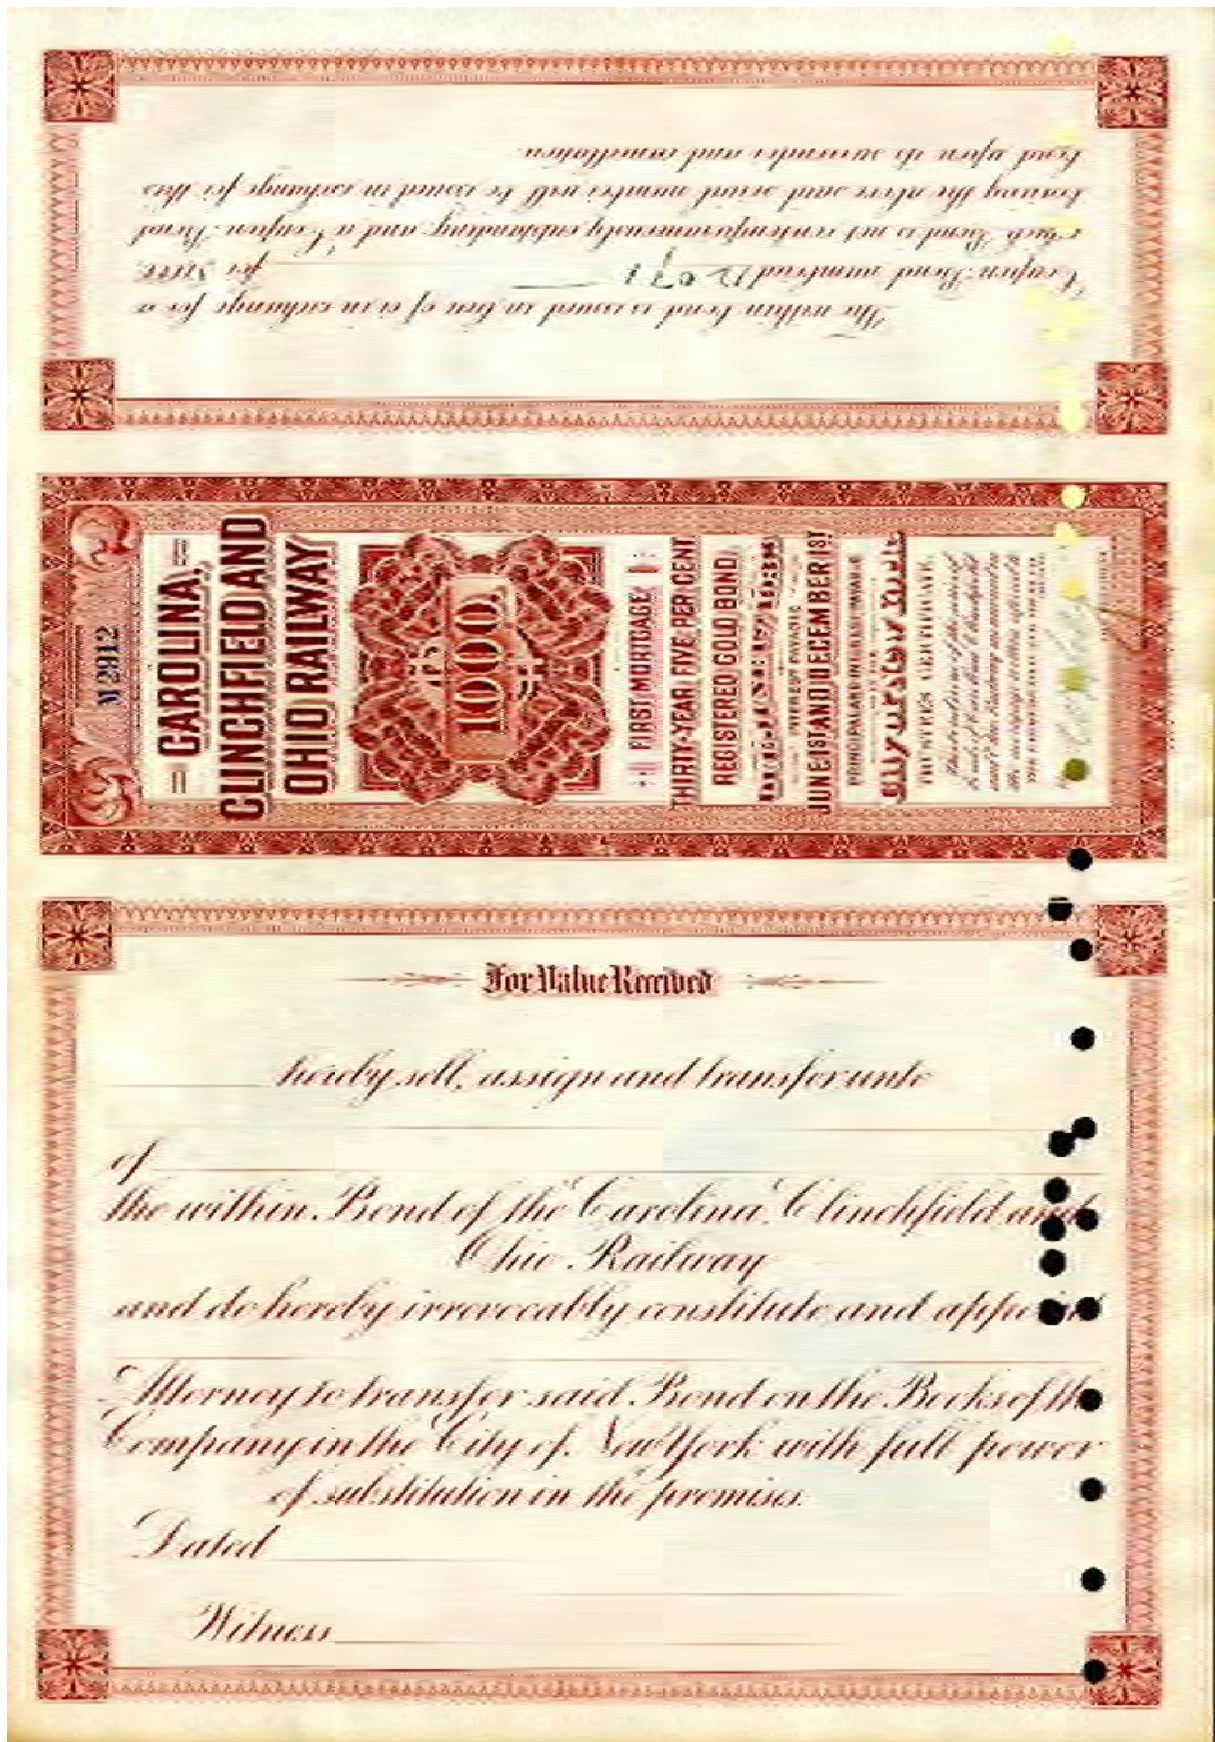 The within bond is issued in lieu of or in exchange for a
Coupon Bond numbered 12071 for $1000.
which Bond is not contemporaneously outstanding, and a Coupon Bond
bearing the above said serial number will be issued in exchange for this
bond upon its surrender and cancellation.
M 2912
CAROLINA,
CLINCHFIELD AND
OHIO RAILWAY
$1000.
FIRST MORTGAGE
THIRTY-YEAR FIVE PER CENT
REGISTERED GOLD BOND.
INTEREST PAYABLE
JUNE 1ST AND DECEMBER 1ST
PRINCIPAL AND INTEREST PAYABLE
TRUSTEE'S CERTIFICATE.
For Value Received
hereby sell, assign and transfer unto
of
the within Bond of the Carolina, Clinchfield and
Ohio Railway
and do hereby irrevocably constitute and appoint
Attorney to transfer said Bond on the Books of the
Company in the City of New York with full power
of substitution in the premises.
Dated
Witness